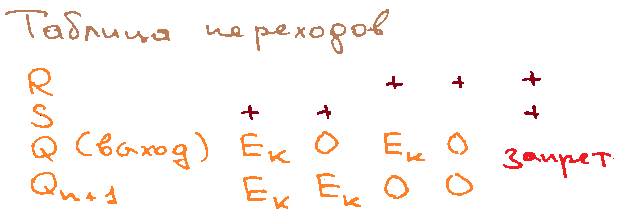 Таблица переходов
R + + +
S + + +
Q (выход) Eк 0 Eк 0 запрет
Qn+1 Eк Eк 0 0